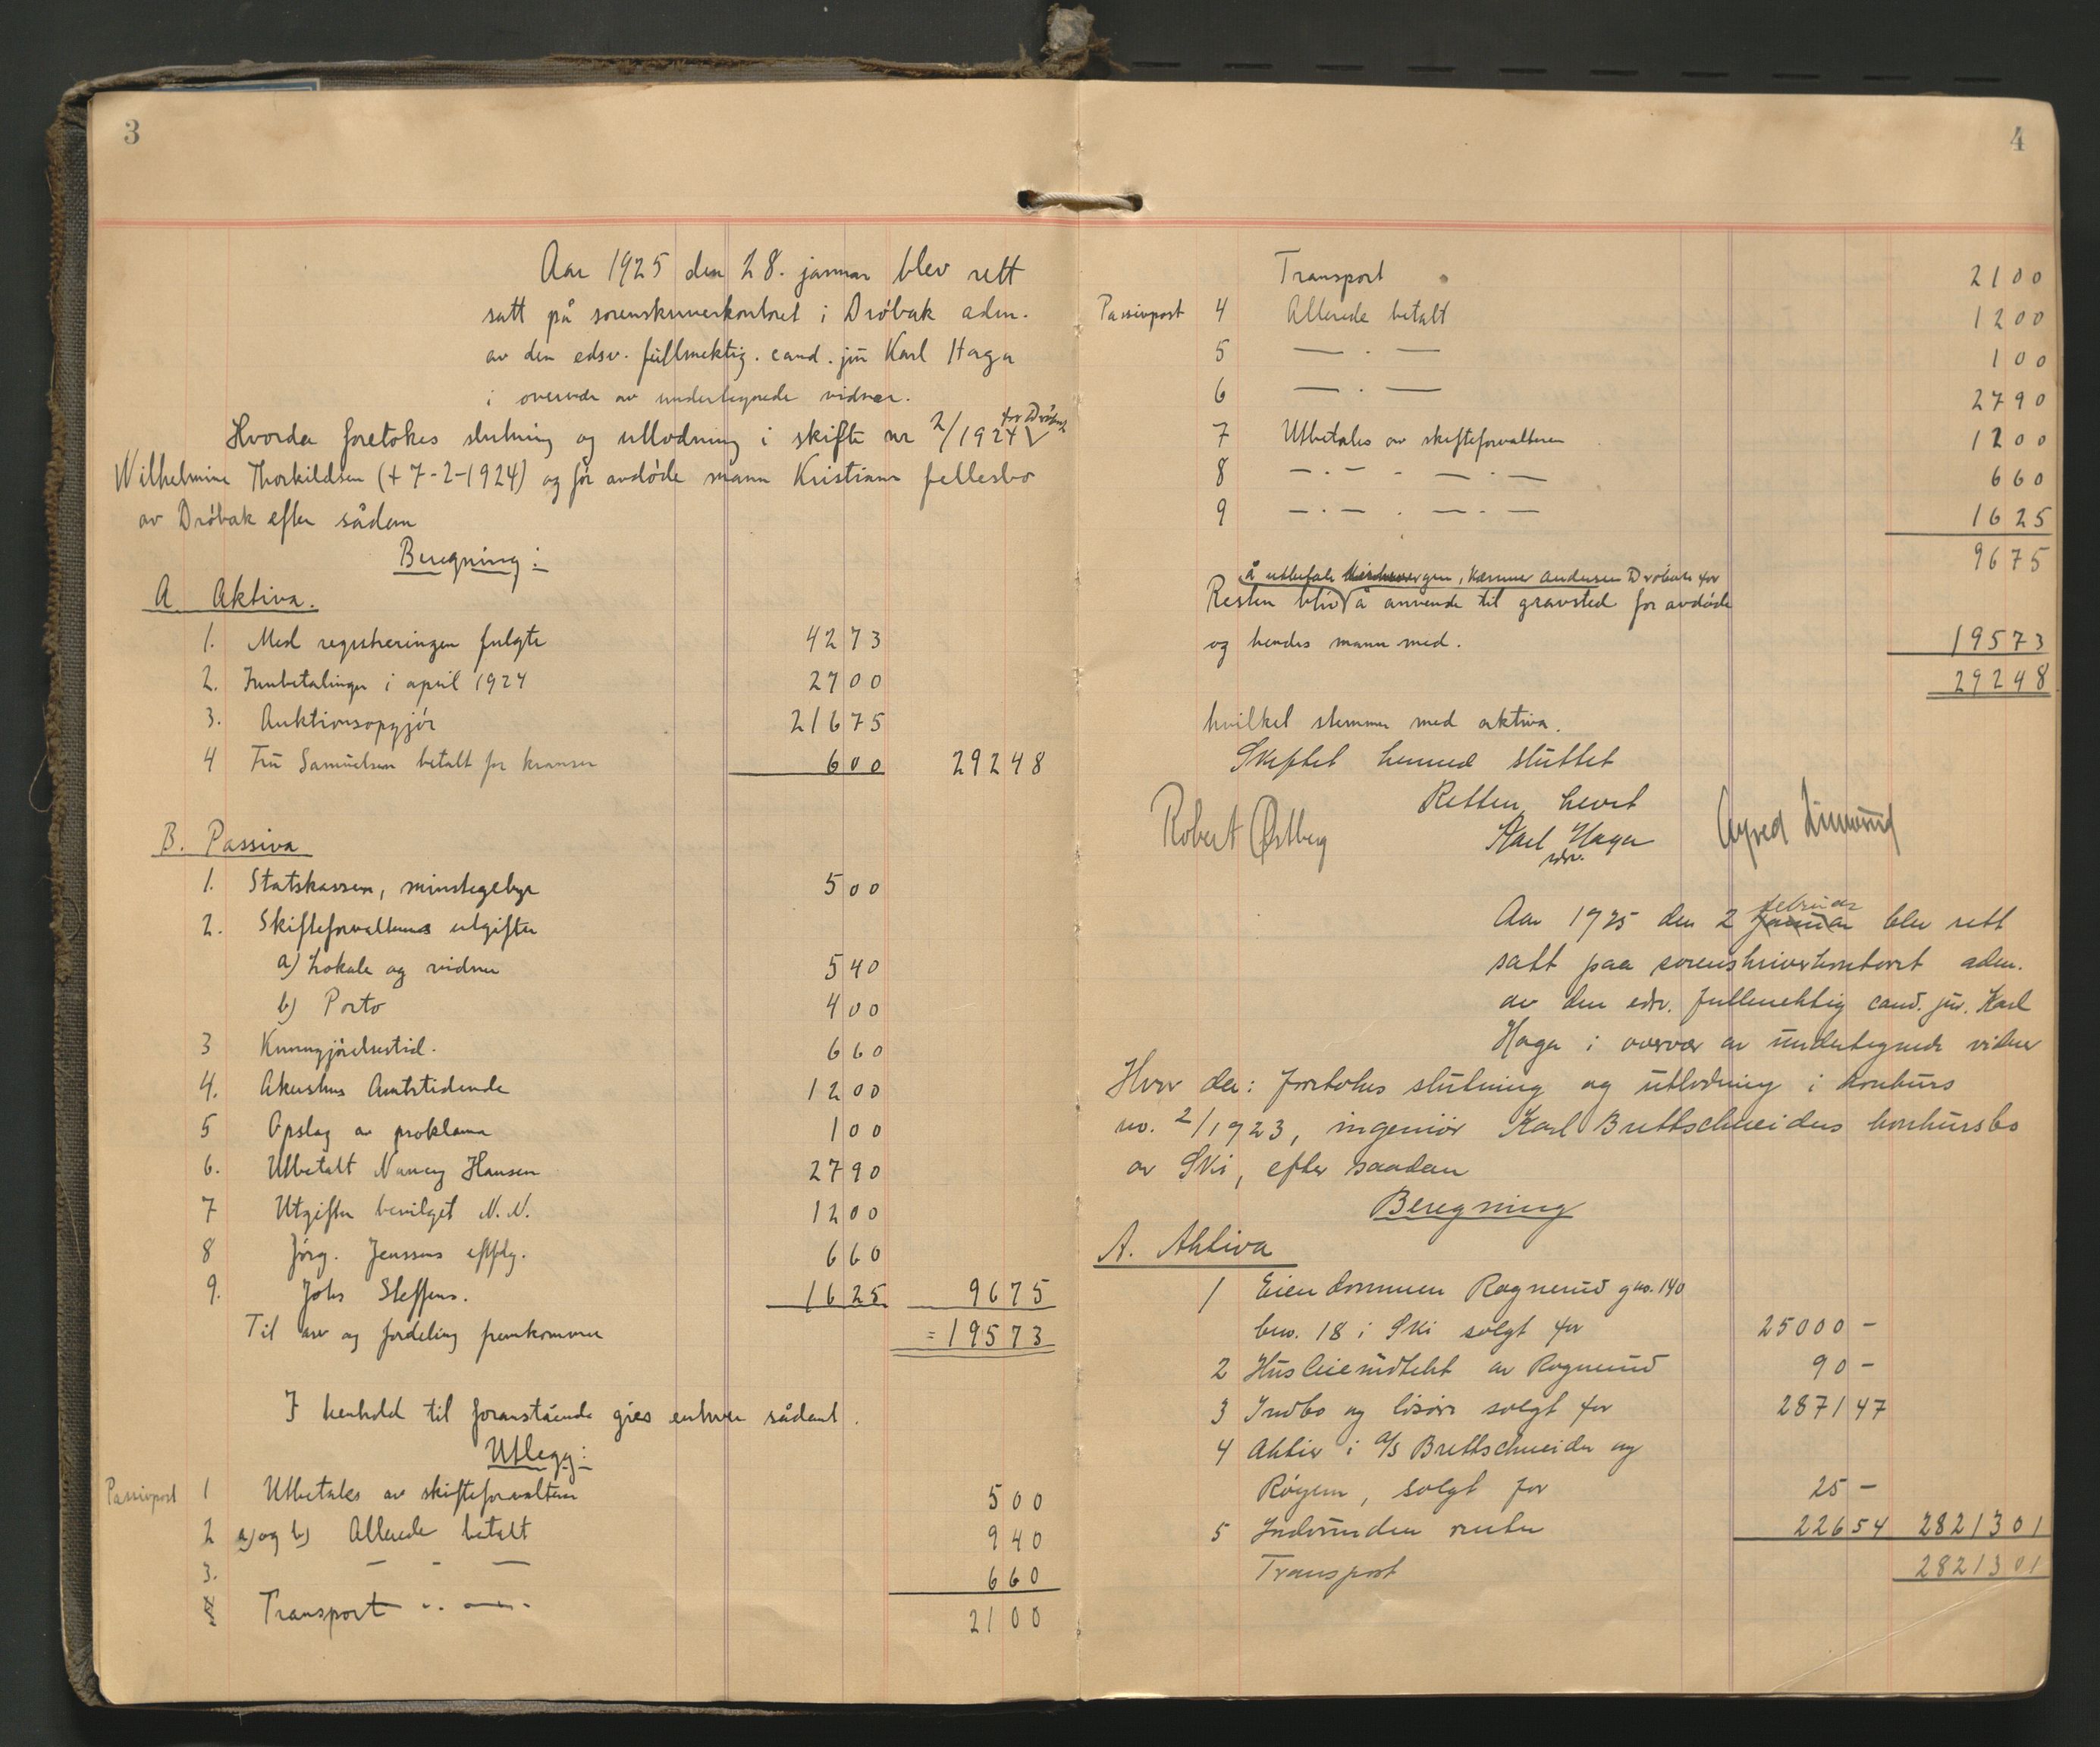 3
Aar 1925 den 28. januar blev rett
satt på sorenskriverkontoret i Drøbak adm.
av den edsv. fullmektig. cand. jur Karl Haga
i overvær av undertegnede vidner.
Hvorda foretokes slutning og utlodning i skifte nr 2/1924 for Drøbak
Wilhelmine Thorkildsen (+ 7-2-1924) og før avdøde mann Kristians fellesbo
av Drøbak efter sådan
Beregning:
A Aktiva.
1. Med registreringen fulgte 42 73
2. Innbetalinger i april 1924 27 00
3. Auktionsopgjør 216 75
4 Fru Samuelsen betalt for kranser 6 00 292 48
B. Passiva
1. Statskassen, minstegebyr 5 00
2. Skifteforvalterens utgifter
a) Lokale og vidner 5 40
b) Porto 4 00
3 Kunngjørelsestid. 6 60
4. Akershus Amtstidende 12 00
5 Opslag av proklama 1 00
6. Utbetalt Nancy Hansen 27 90
7 Utgifter bevilget N.N. 12 00
8 Jørg. Jenssens eftflg. 6 60
9. Johs Steffens. 16 25 96 75
Til arv og fordeling fremkommer = 195 73
I henhold til foranstående gies enhver sådant.
Utlegg:
Passivpost 1 Utbetales av skifteforvalteren 5 00
2 a) og b) Allerede betalt 9 40
3. — - — 6 60
Transport 21 00
4
Transport 21 00
Passivpost 4 Allerede betalt 12 00
5 — . — 1 00
6 — . — 27 90
7 Utbetales av skifteforvalteren 12 00
8 — . — - — . — 6 60
9 — . — . — . — 16 25
96 75
å utbetale kæmner Andersen Drøbak for
Resten blir å anvende til gravsted for avdøde
og hendes mann med. 195 73
292 48
hvilket stemmer med aktiva.
Skiftet hermed sluttet
Retten hevet
Robert Østberg Karl Haga Alfred
edsv.
februar
Aar 1925 den 2 januar blev rett
satt paa sorenskriverkontoret adm.
av den edsv. fullmektig cand. jur. Karl
Haga i overvær av undertegnede vidner
Hvor da: foretokes slutning og utlodning i konkurs
no. 2/1923, ingeniør Karl Brettschneiders konkursbo
av Ski, efter saadan
Beregning
A. Aktiva
1 Eiendommen Rognerud gno. 140
bno. 18 i Ski solgt for 25000 -
2 Husleieindtekt av Rognerud 90 -
3 Indbo og løsøre solgt for 2871 47
4 Aktier i A/S Brettschneider og
Røyem, solgt for 25 -
5 Indvunden renter 226 54 28213 01
Transport 28213 01